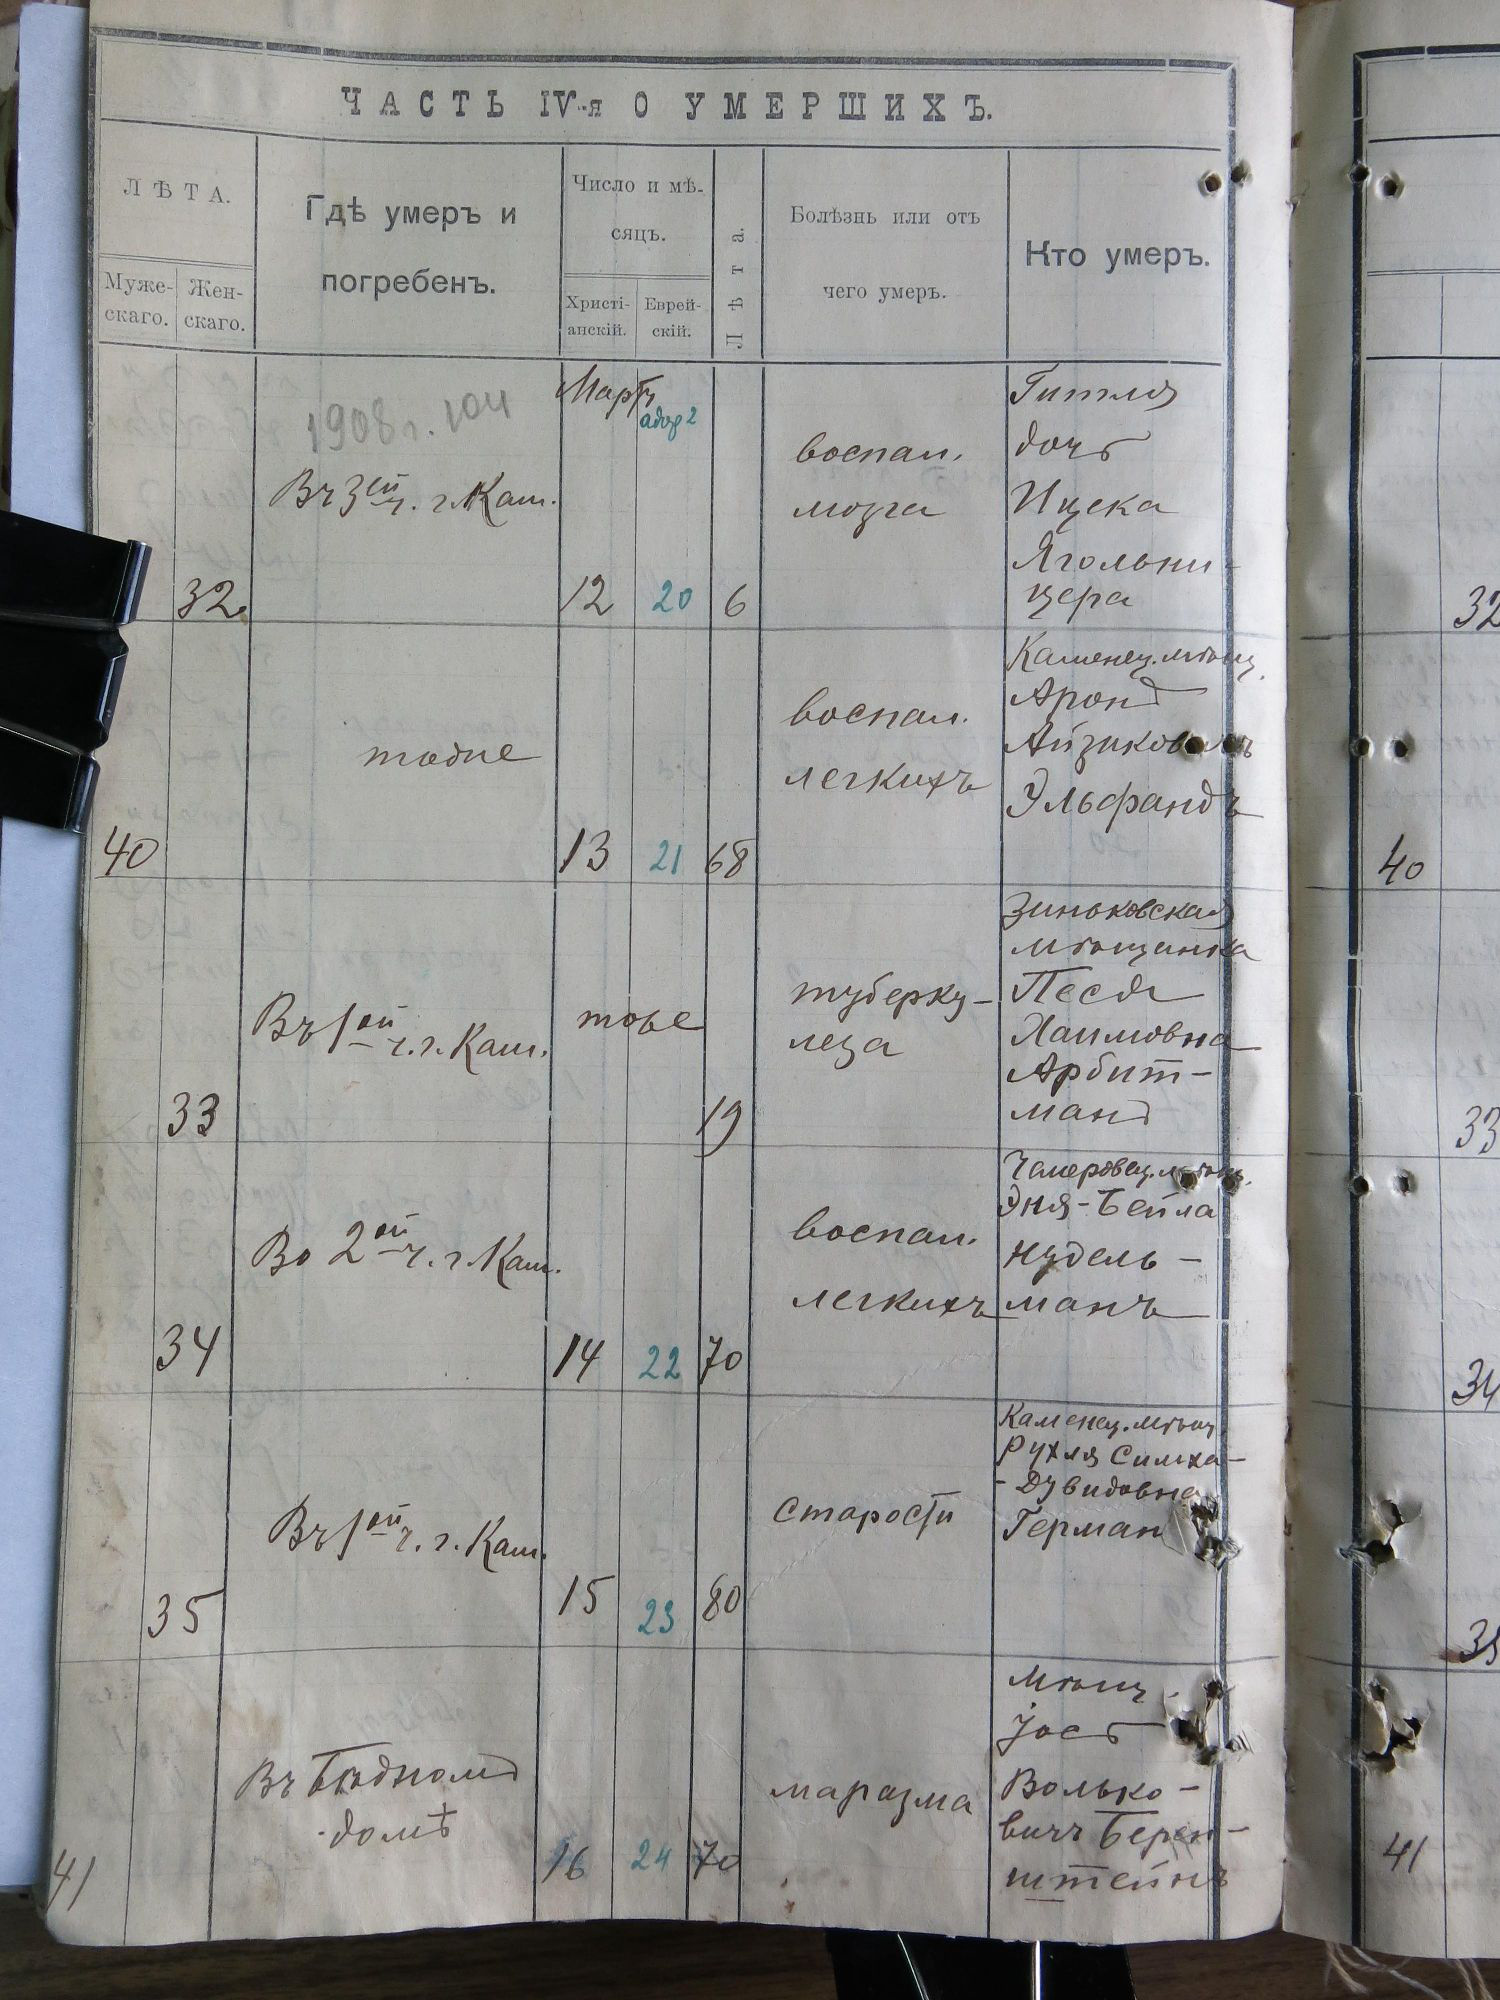 ЧАСТЬ IV-я О УМЕРШИХЪ.
ЛѢТА.
Муже-
скаго.
Жен-
скаго.
Гдѣ умеръ и
погребенъ.
Число и мѣ-
сяцъ.
Христі-
анскій.
Еврей-
скій.
Лѣта.
Болѣзнь или отъ
чего умеръ.
Кто умеръ.
1908 г. 104
Мартъ
адар 2
32
Въ 3ей ч. г. Кам.
12
20
6
воспал.
мозга
Гитля
дочь
Ицека
Ягольни-
цера
32
40
тоже
13
21
68
воспал.
легкихъ
Каменец. мѣщ.
Аронъ
Айзиковичъ
Ульфандъ
40
33
Въ 1ой ч. г. Кам.
тоже
19
туберку-
леза
Зиньковская
мѣщанка
Песя
Хаимовна
Арбит-
манъ
33
34
Во 2ой ч. г. Кам.
14
22
70
воспал.
легкихъ
Чемеровец. мѣщ.
Эня-Бейла
Нудель-
манъ
34
35
Въ 1ой ч. г. Кам.
15
23
80
старости
Каменец. мѣщ.
Рухля Симха-
-Дувидовна
Герман
35
41
Въ Бѣдномъ
домѣ
16
24
70
маразма
Мѣщ.
Іось
Волько-
вичъ Берен-
штейнъ
41